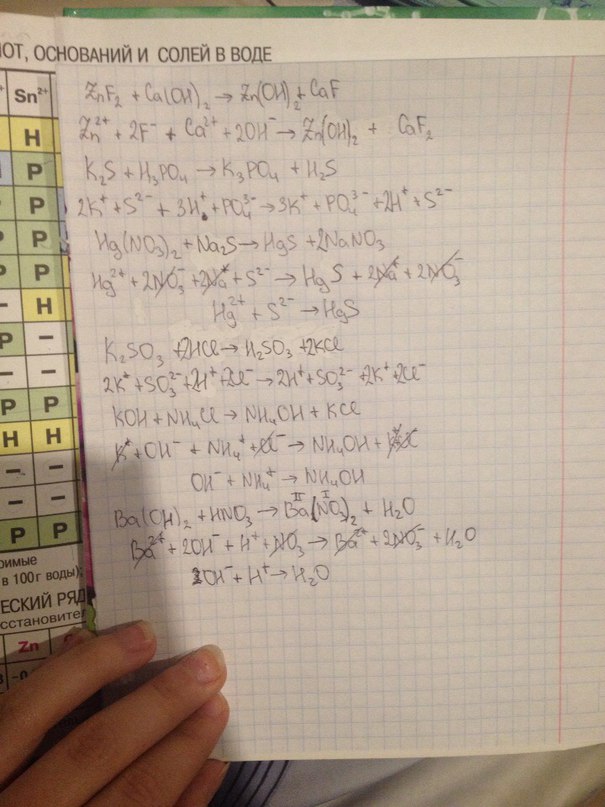 ЮТ, ОСНОВАНИЙ И СОЛЕЙ В ВОДЕ
Sn²⁺
Н
Р
Р
Р
Р
– Н
Р –
– –
Р Р
Н Н
– –
– –
Р Р
римые
в 100г воды);
ЕСКИЙ РЯД
сстановител
Zn
ZnF₂ + Ca(OH)₂ → Zn(OH)₂ + CaF
Zn²⁺ + 2F⁻ + Ca²⁺ + 2OH⁻ → Zn(OH)₂ + CaF₂
K₂S + H₃PO₄ → K₃PO₄ + H₂S
2K⁺ + S²⁻ + 3H⁺ + PO₄³⁻ → 3K⁺ + PO₄³⁻ + 2H⁺ + S²⁻
Hg(NO₃)₂ + Na₂S → HgS + 2NaNO₃
Hg²⁺ + 2NO₃⁻ + 2Na⁺ + S²⁻ → HgS + 2Na⁺ + 2NO₃⁻
Hg²⁺ + S²⁻ → HgS
K₂SO₃ + 2HCl → H₂SO₃ + 2KCl
2K⁺ + SO₃²⁻ + 2H⁺ + 2Cl⁻ → 2H⁺ + SO₃²⁻ + 2K⁺ 2Cl⁻
KOH + NH₄Cl → NH₄OH + KCl
K⁺ + OH⁻ + NH₄⁺ + Cl⁻ → NH₄OH +
OH⁻ + NH₄⁺ → NH₄OH
Ba(OH)₂ + HNO₃ → Ba(NO₃)₂ + H₂O
II I
Ba²⁺ + 2OH⁻ + H⁺ + NO₃ → Ba²⁺ + 2NO₃⁻ + H₂O
2OH⁻ + H⁺ → H₂O